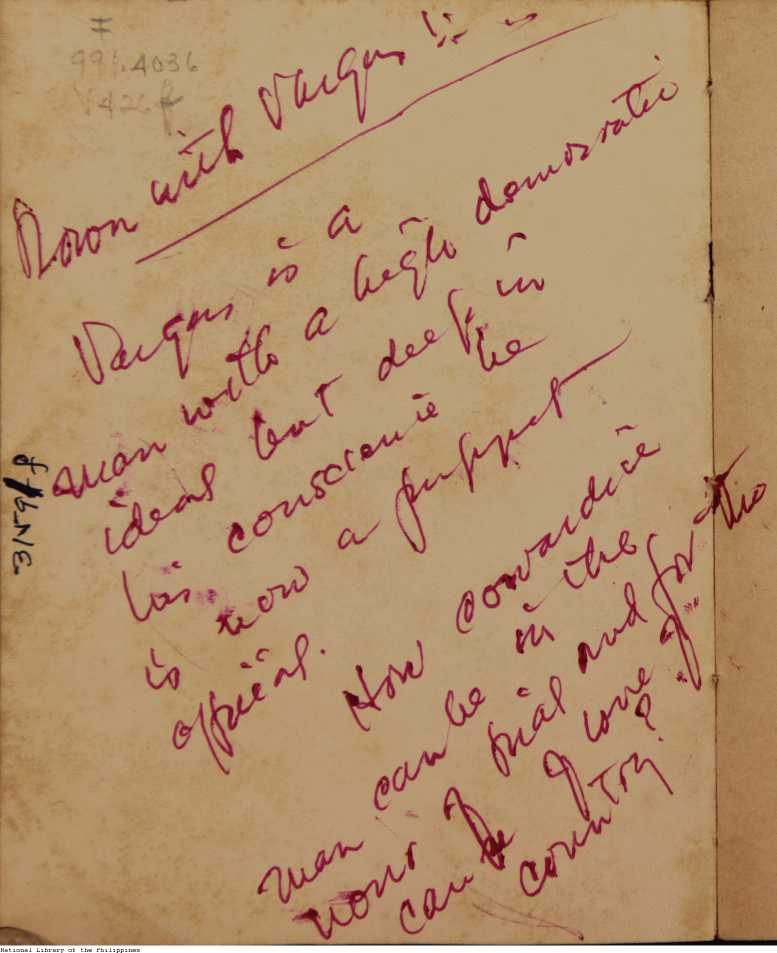 F
991.4036
V426f
Down with Vargas!!
Vargas is a
man with a high democratic
ideal but deep in
his conscience he
is now a puppet
official.
How cowardice
man can be in the
hour of trial and for the
can be of love of
country?
National Library of the Philippines